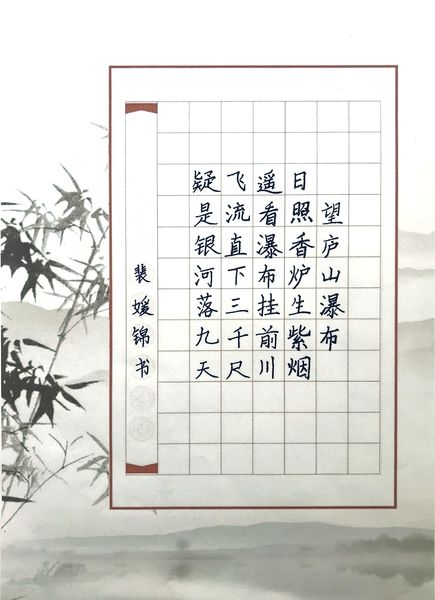 望庐山瀑布
日照香炉生紫烟
遥看瀑布挂前川
飞流直下三千尺
疑是银河落九天
裴媛锦书